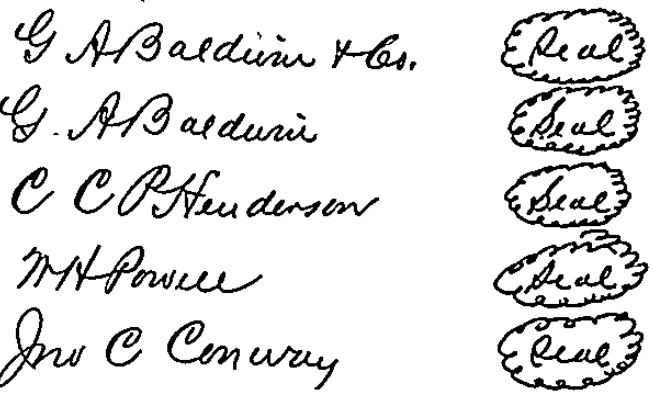 G A Baldwin & Co. Seal
G. A Baldwin Seal
C C P Henderson Seal
W H Powell Seal
Jno C Conway Seal